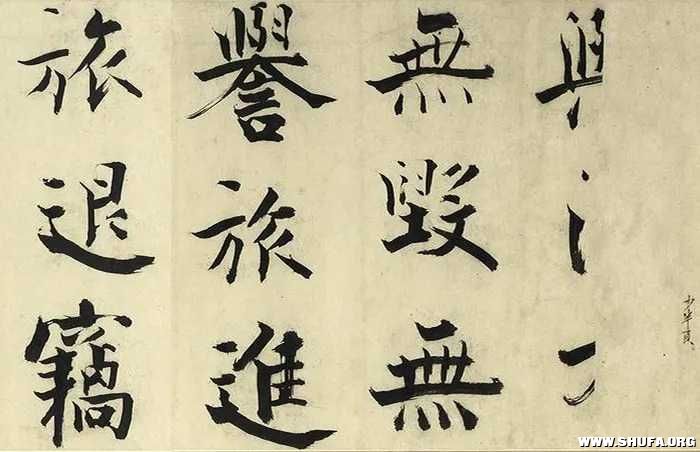 無毀無
譽旅進
旅退竊
WWW.SHUFA.ORG